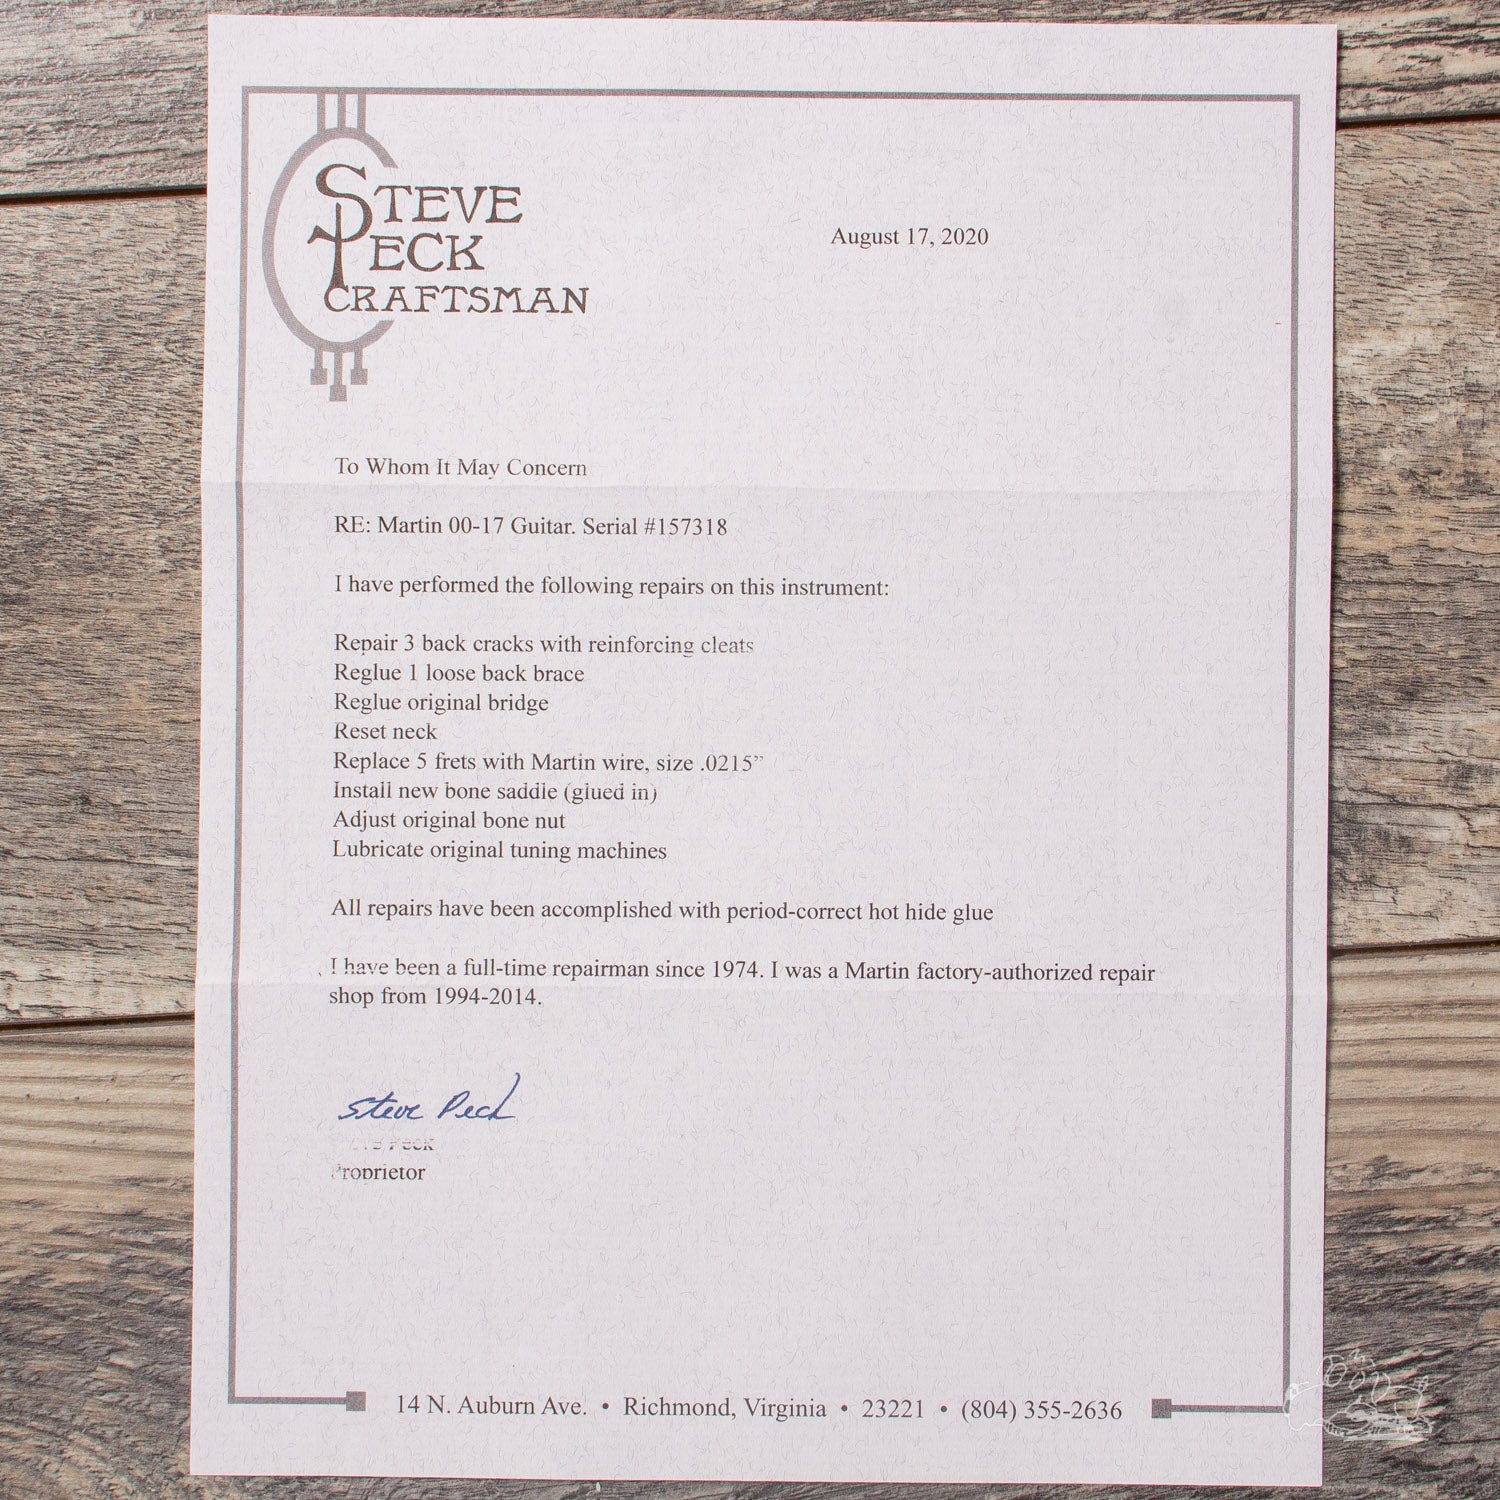 STEVE
PECK
CRAFTSMAN
August 17, 2020
To Whom It May Concern
RE: Martin 00-17 Guitar. Serial #157318
I have performed the following repairs on this instrument:
Repair 3 back cracks with reinforcing cleats
Reglue 1 loose back brace
Reglue original bridge
Reset neck
Replace 5 frets with Martin wire, size .0215”
Install new bone saddle (glued in)
Adjust original bone nut
Lubricate original tuning machines
All repairs have been accomplished with period-correct hot hide glue
I have been a full-time repairman since 1974. I was a Martin factory-authorized repair
shop from 1994-2014.
Steve Peck
Peck
Proprietor
14 N. Auburn Ave. • Richmond, Virginia • 23221 • (804) 355-2636